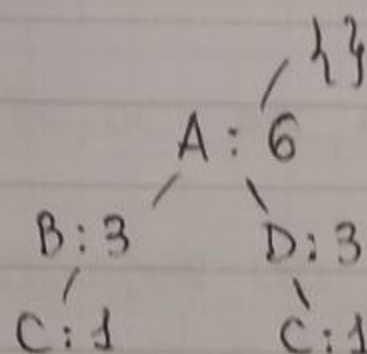 { }
A : 6
B : 3 D : 3
C : 1 C : 1